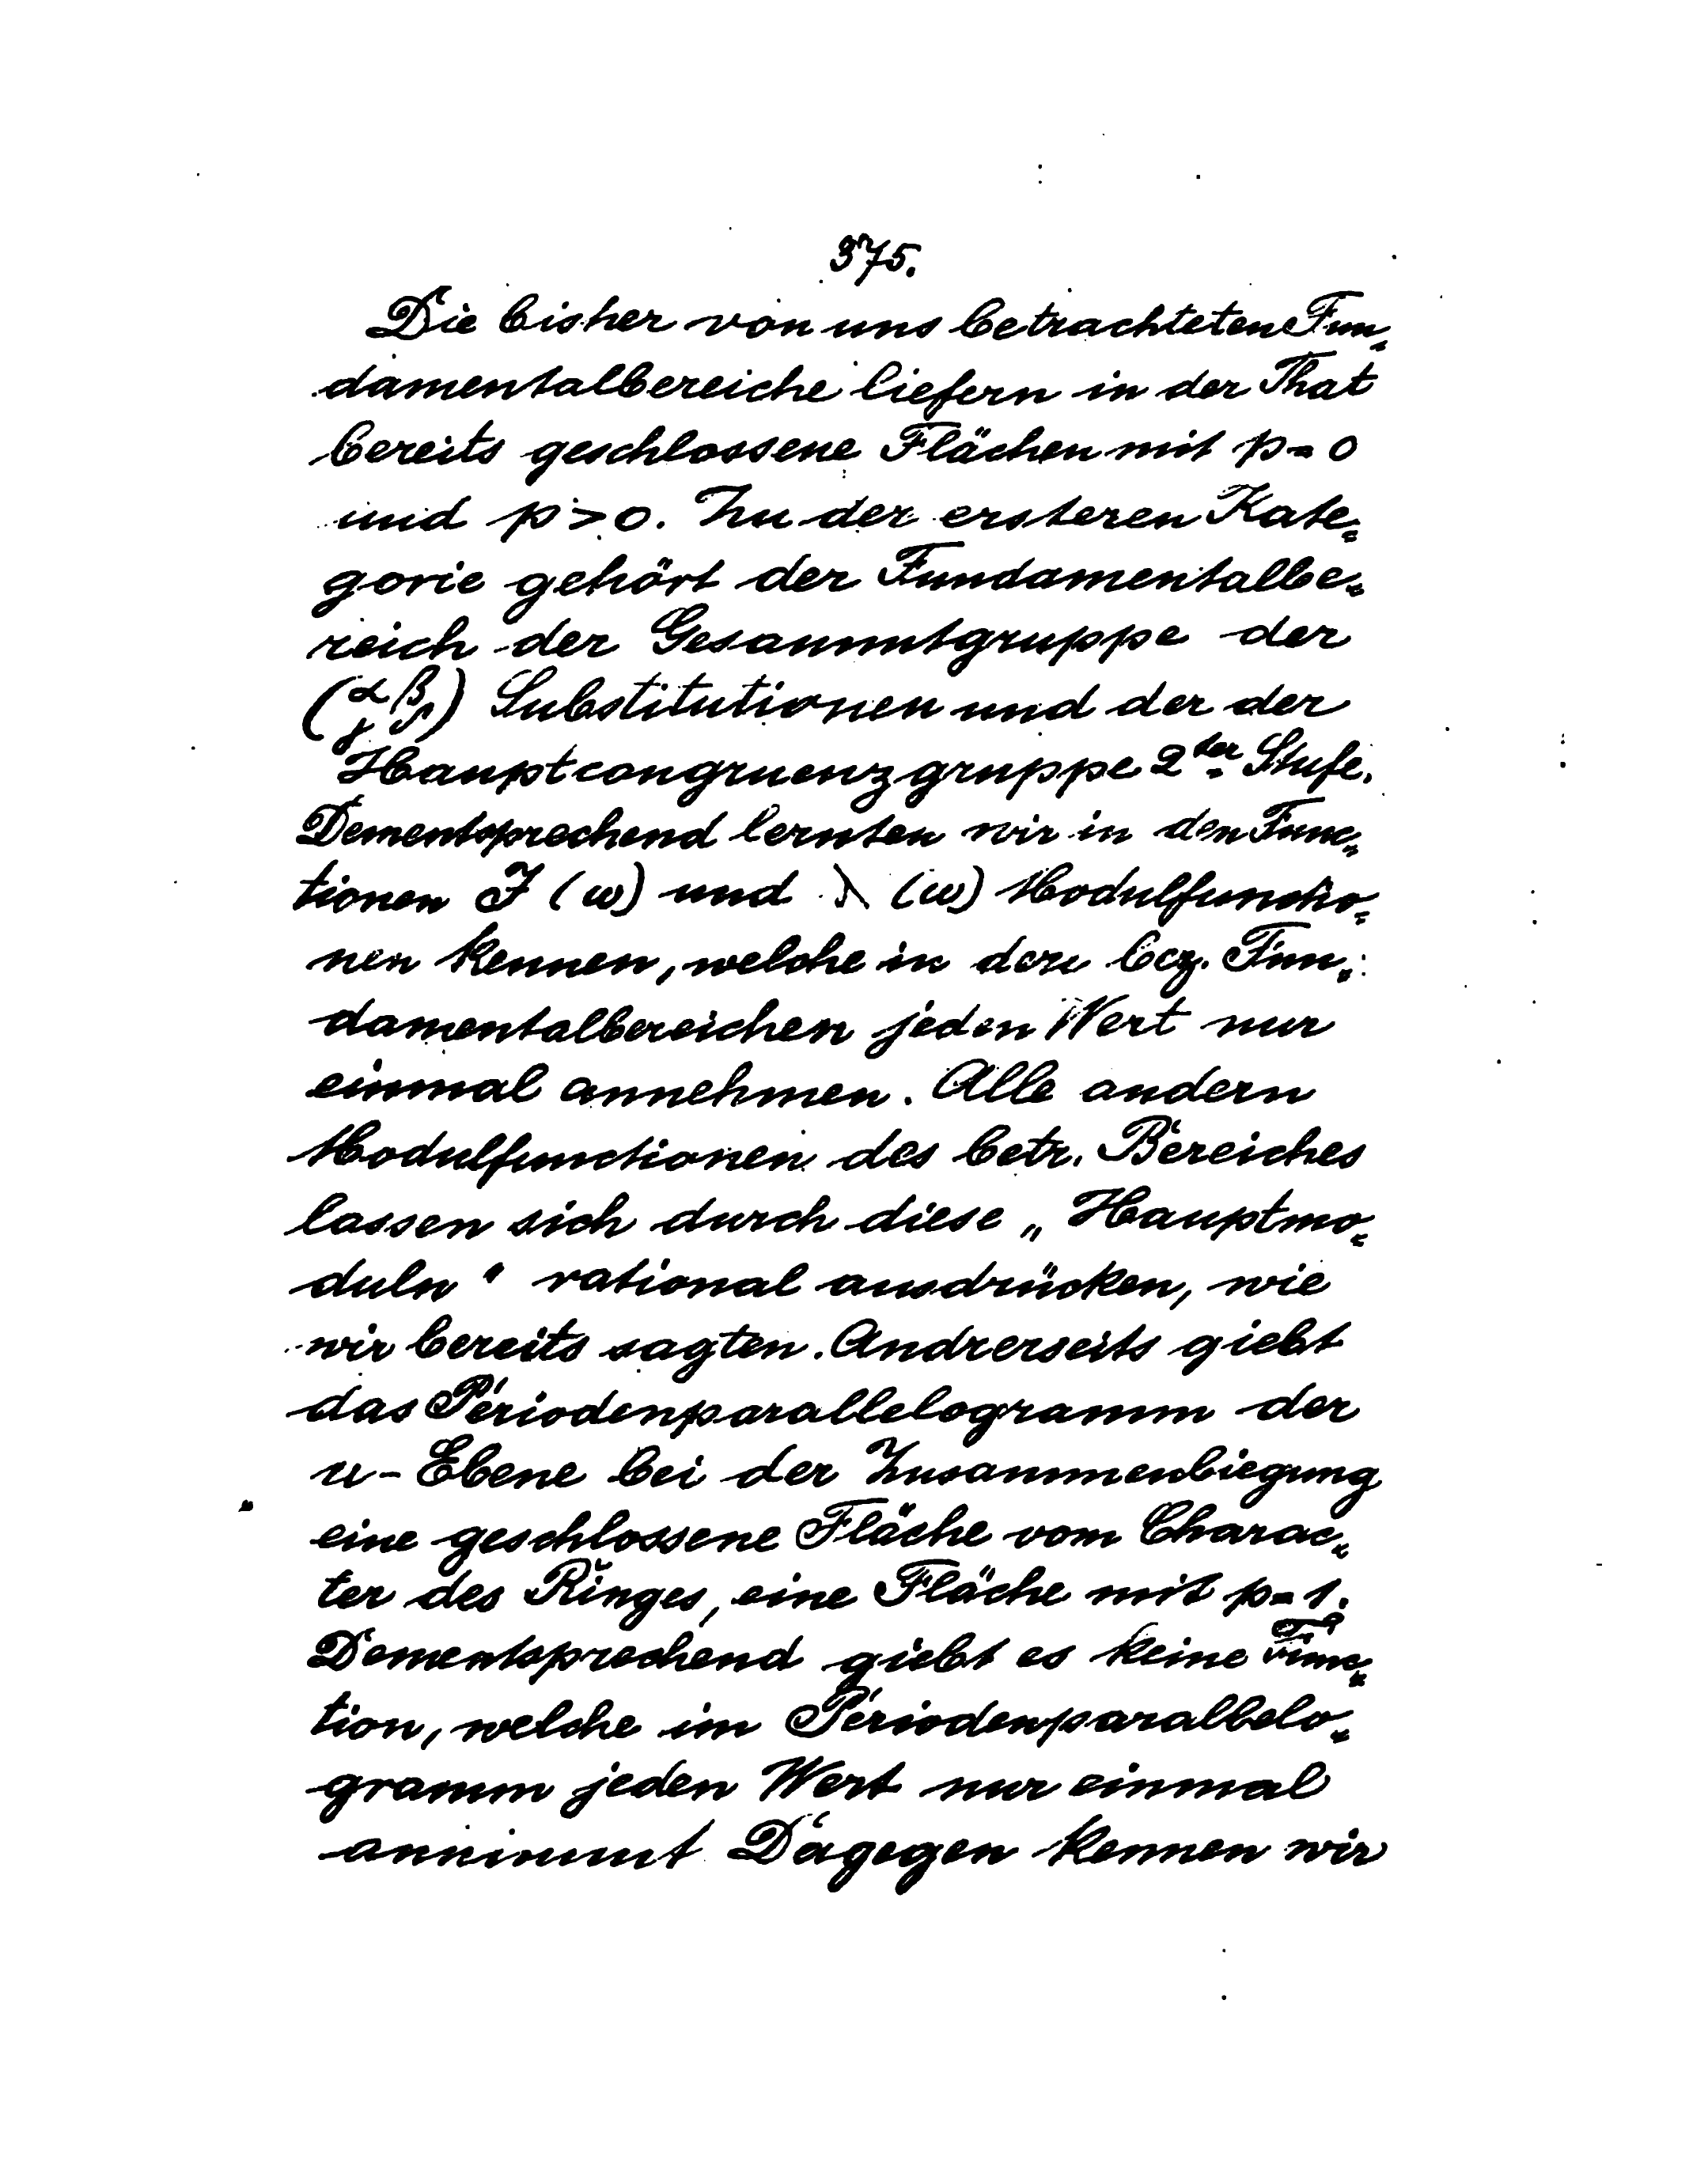 375.
Die bisher von uns betrachteten Fun=
damentalbereiche liefern in der That
bereits geschlossene Flächen mit p=0
und p>0. Zu der ersteren Kate=
gorie gehört der Fundamentalbe=
reich der Gesammtgruppe der
(α β
γ δ) Substitutionen und der der
Hauptcongruenzgruppe 2ter Stufe.
Dementsprechend lernten wir in den Func=
tionen J (ω) und λ (ω) Modulfunctio=
nen kennen, welche in den bez. Fun=
damentalbereichen jeden Wert nur
einmal annehmen. Alle andern
Modulfunctionen des betr. Bereiches
lassen sich durch diese „Hauptmo=
duln“ rational ausdrücken, wie
wir bereits sagten. Andrerseits giebt
das Periodenparallelogramm der
u-Ebene bei der Zusammenbiegung
eine geschlossene Fläche vom Charac=
ter des Ringes, eine Fläche mit p=1.
Dementsprechend giebt es keine Func=
tion, welche im Periodenparallelo=
gramm jeden Wert nur einmal
annimmt Dagegen kennen wir